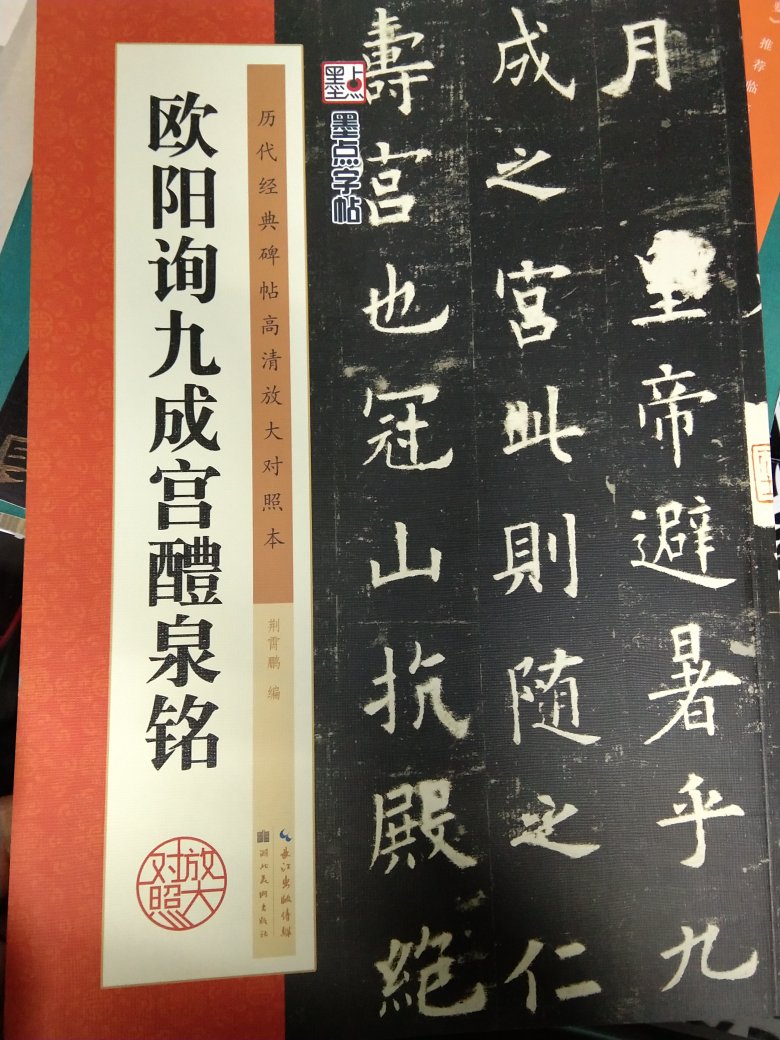 欧阳询九成宫醴泉铭
历代经典碑帖高清放大对照本
荆霄鹏 编
放大
对照
长江出版传媒
湖北美术出版社
墨点
墨点字帖
月 皇帝避暑乎九
成之宫此則随之仁
壽宫也冠山抗殿絶
推荐临